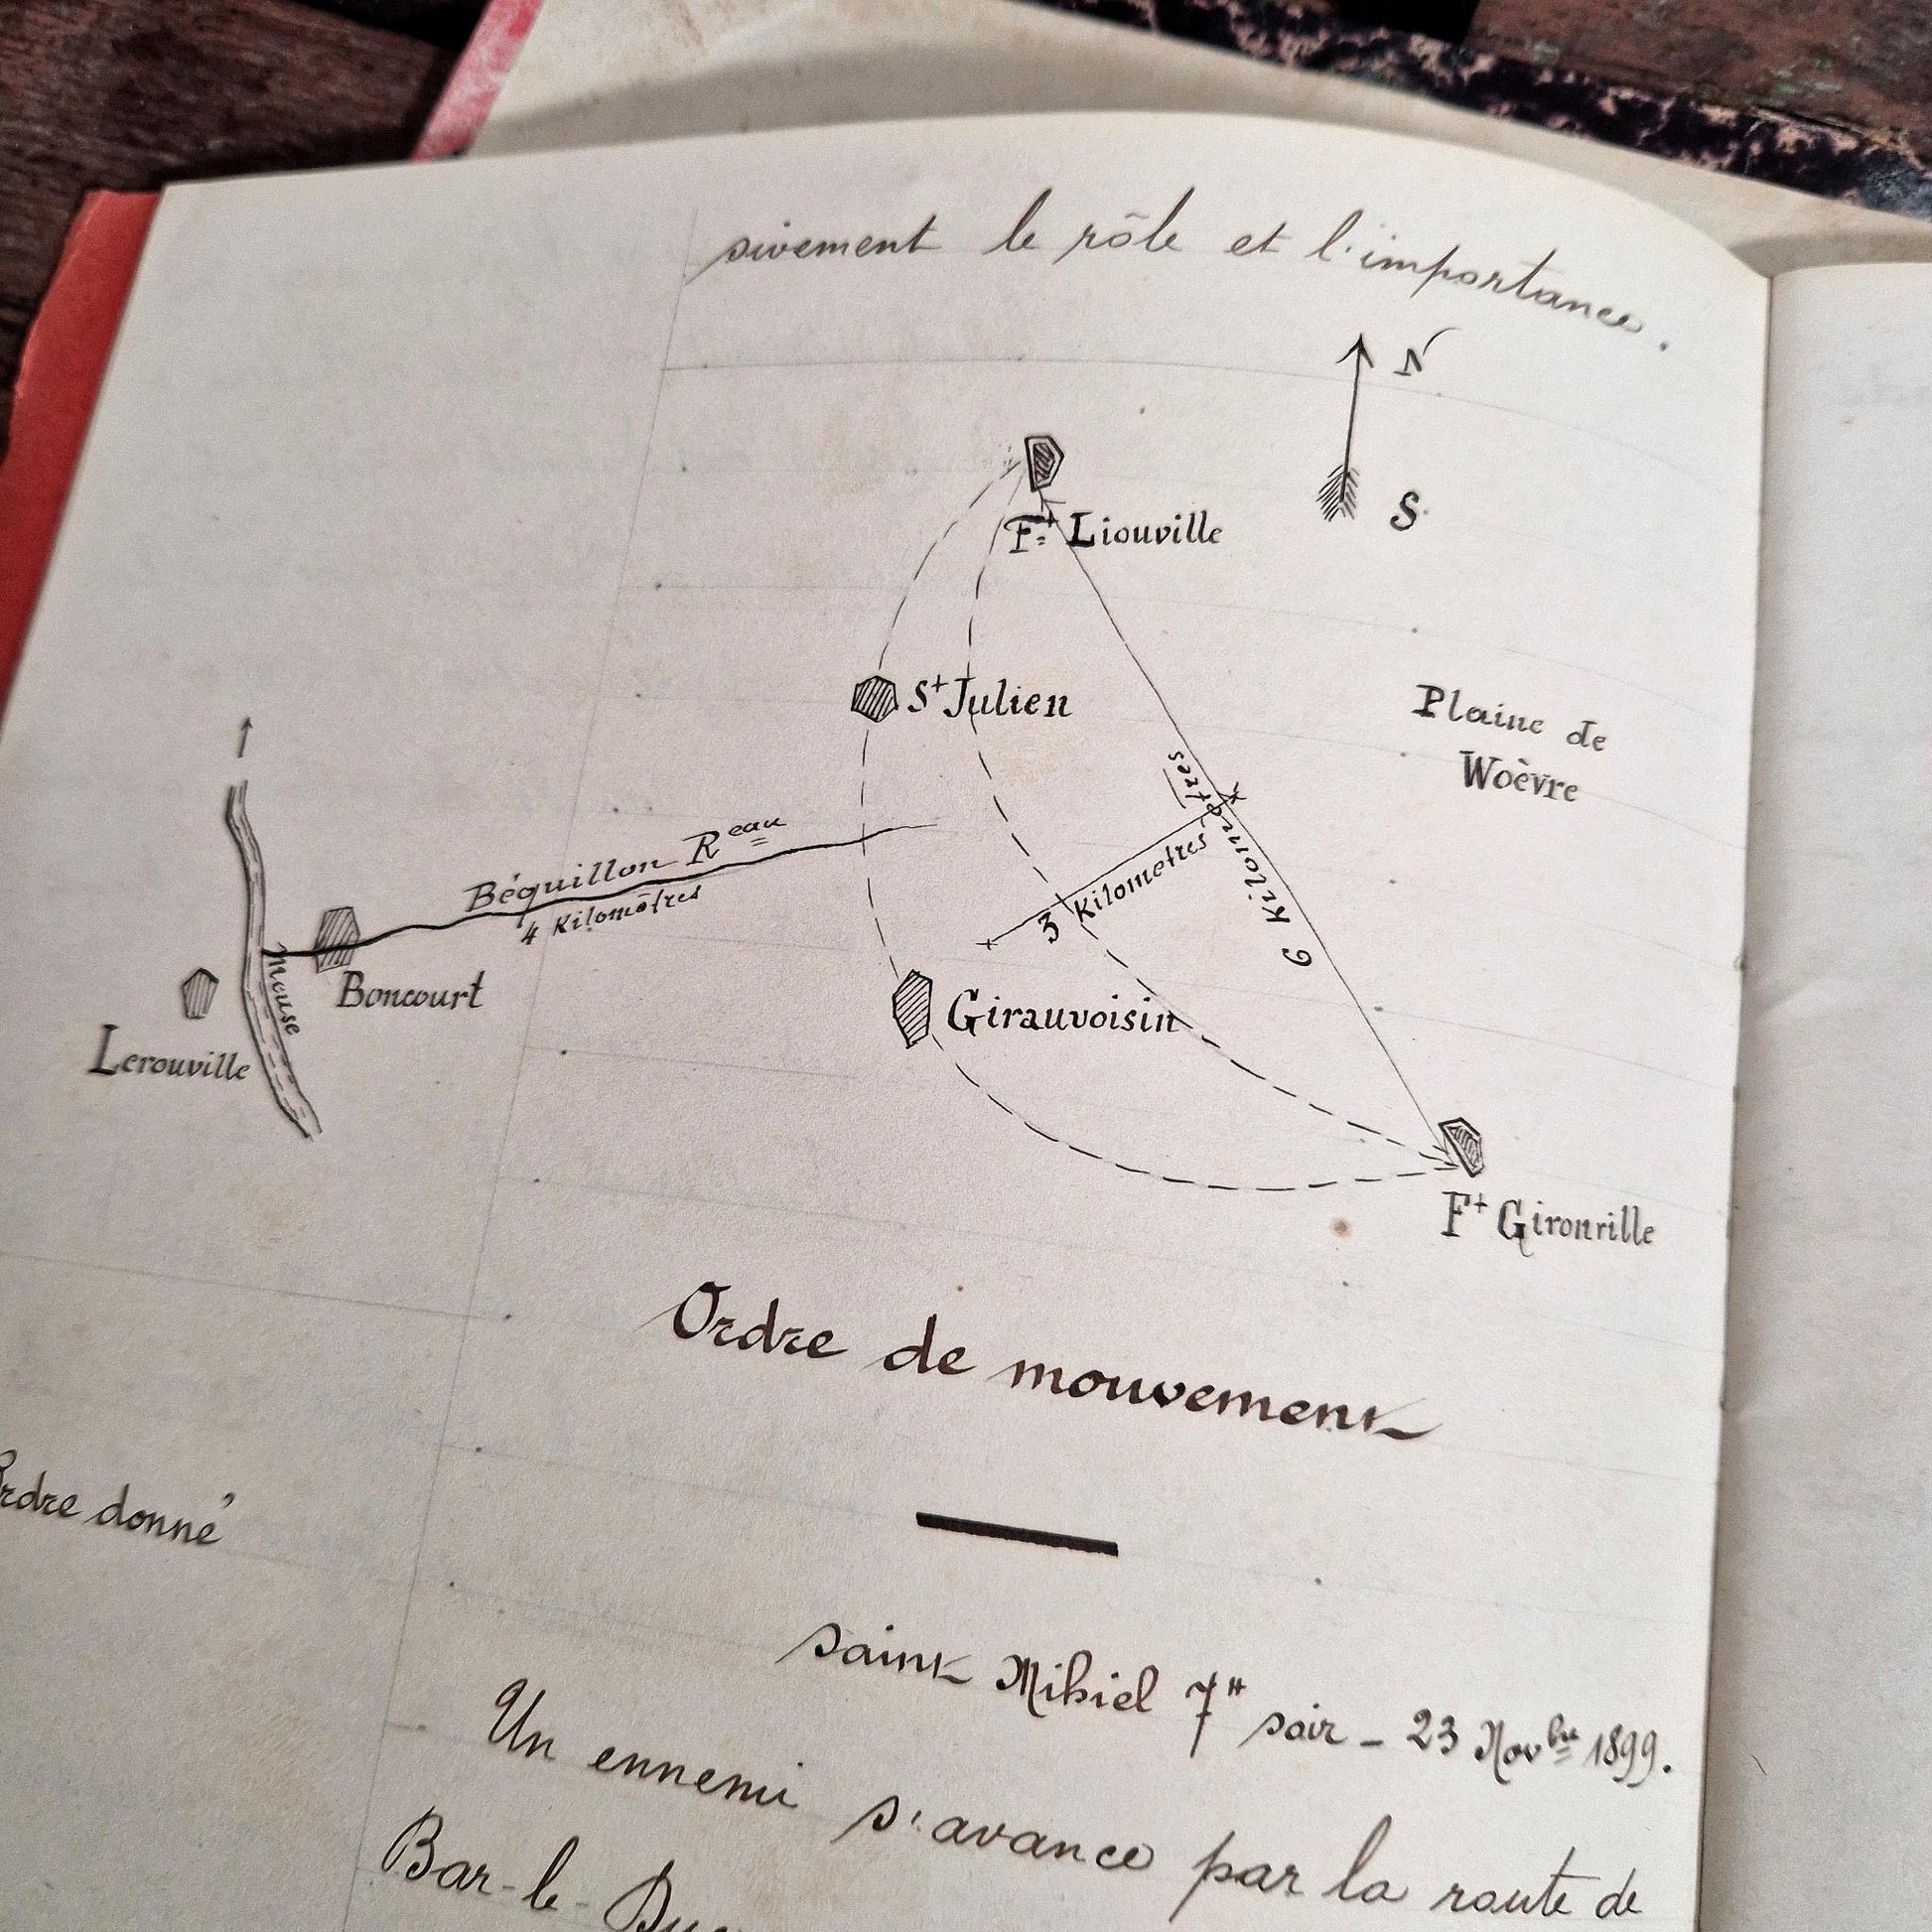 sivement le rôle et l'importance.
N
S.
Ft Liouville
St Julien
Plaine de
Woëvre
6 Kilomètres
3 Kilometres
Béquillon Reau
4 Kilomètres
Boncourt
Meuse
Lerouville
Girauvoisin
Ft Gironville
Ordre de mouvement
Ordre donné
Saint Mihiel 7H soir - 23 Novbre 1899.
Un ennemi s'avance par la route de
Bar-le-Duc